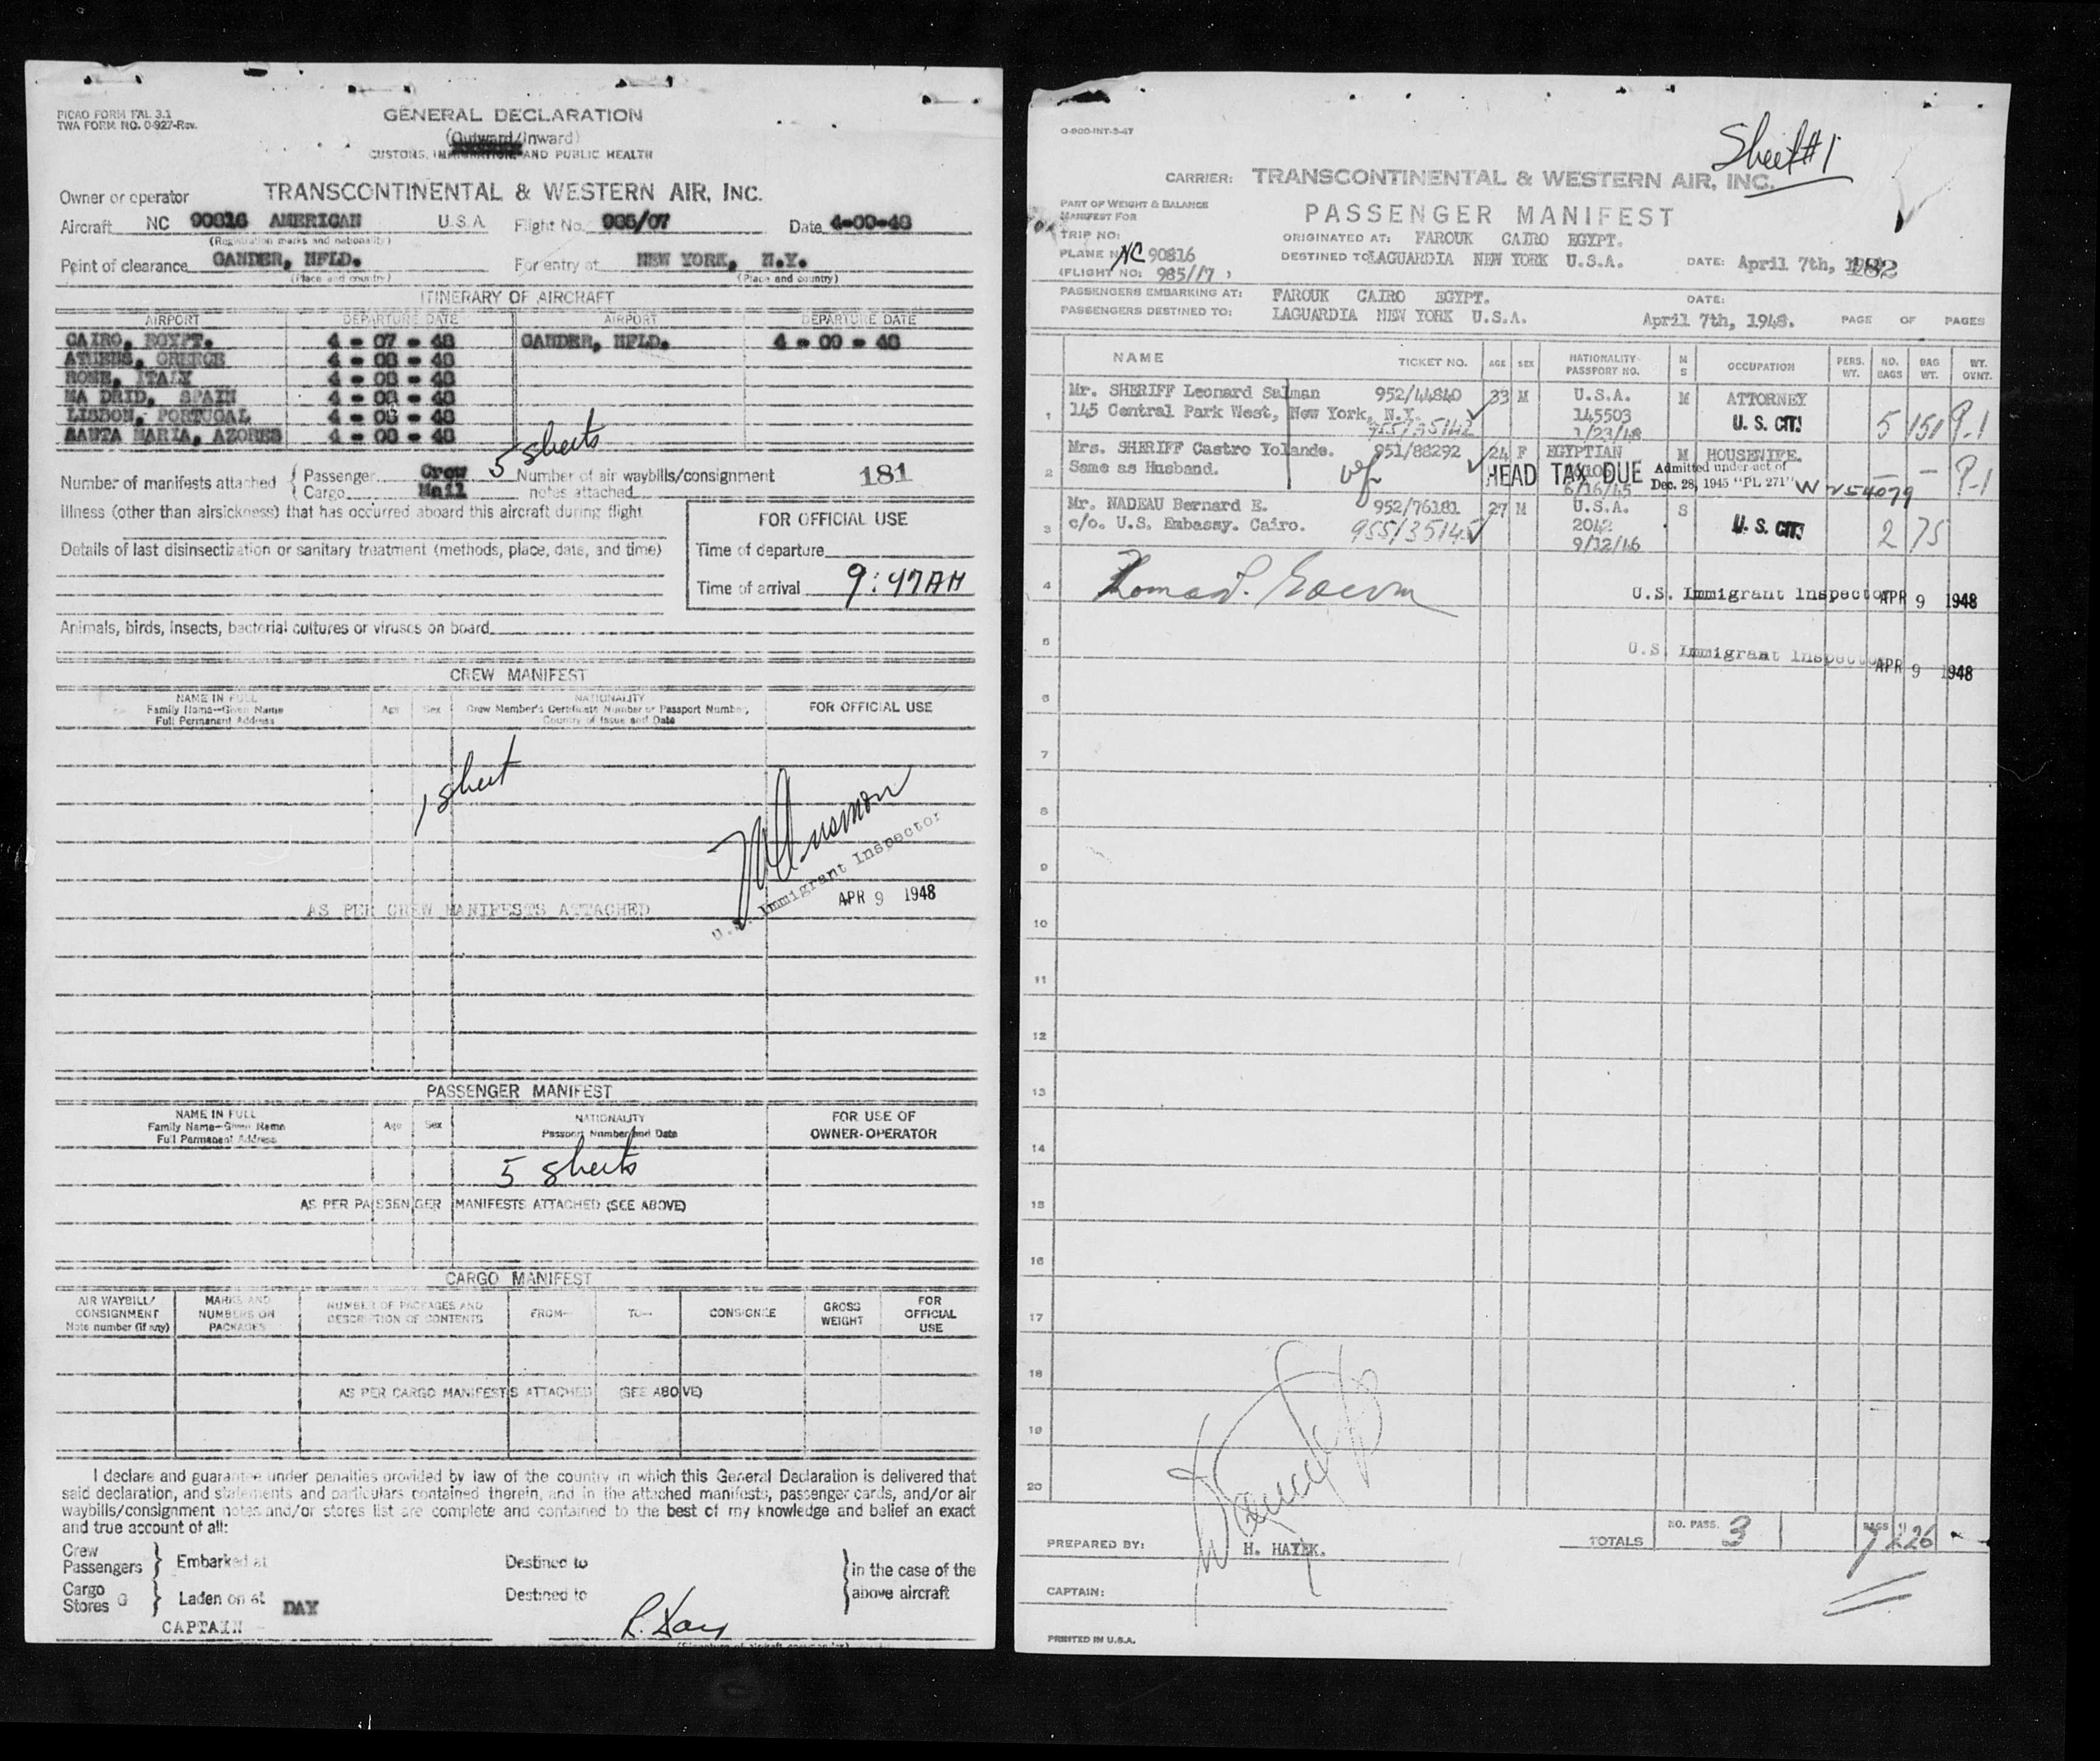 PICAO FORM FAL 3.1
TWA FORM NO. O-927-Rev.
GENERAL DECLARATION
(Outward/Inward)
CUSTOMS, IMMIGRATION, AND PUBLIC HEALTH
Owner or operator TRANSCONTINENTAL & WESTERN AIR, INC.
Aircraft NC 90816 AMERICAN U.S.A. Flight No. 985/07 Date 4-09-48
(Registration marks and nationality)
Point of clearance GANDER, NFLD. For entry at NEW YORK, N.Y.
(Place and country) (Place and country)
ITINERARY OF AIRCRAFT
AIRPORT DEPARTURE DATE AIRPORT DEPARTURE DATE
CAIRO, EGYPT. 4 - 07 - 48 GANDER, NFLD. 4 - 09 - 48
ATHENS, GREECE 4 - 08 - 48
ROME, ITALY 4 - 08 - 48
MA DRID, SPAIN 4 - 08 - 48
LISBON, PORTUGAL 4 - 08 - 48
SANTA MARIA, AZORES 4 - 08 - 48
5 sheets
Number of manifests attached { Passenger Crew Number of air waybills/consignment 181
Cargo Mail notes attached
Illness (other than airsickness) that has occurred aboard this aircraft during flight
FOR OFFICIAL USE
Details of last disinsectization or sanitary treatment (methods, place, date, and time)
Time of departure
Time of arrival 9:47AM
Animals, birds, insects, bacterial cultures or viruses on board
CREW MANIFEST
NAME IN FULL
Family Name—Given Name
Full Permanent Address
Age Sex
NATIONALITY
Crew Member's Certificate Number or Passport Number,
Country of Issue and Date
FOR OFFICIAL USE
1 sheet
U.S. Immigrant Inspector
APR 9 1948
AS PER CREW MANIFESTS ATTACHED
PASSENGER MANIFEST
NAME IN FULL
Family Name—Given Name
Full Permanent Address
Age Sex
NATIONALITY
Passport Number and Date
FOR USE OF
OWNER-OPERATOR
5 sheets
AS PER PASSENGER MANIFESTS ATTACHED (SEE ABOVE)
CARGO MANIFEST
AIR WAYBILL/
CONSIGNMENT
Note number (if any)
MARKS AND
NUMBERS ON
PACKAGES
NUMBER OF PACKAGES AND
DESCRIPTION OF CONTENTS
FROM— TO— CONSIGNEE
GROSS
WEIGHT
FOR
OFFICIAL
USE
AS PER CARGO MANIFESTS ATTACHED (SEE ABOVE)
I declare and guarantee under penalties provided by law of the country in which this General Declaration is delivered that
said declaration, and statements and particulars contained therein, and in the attached manifests, passenger cards, and/or air
waybills/consignment notes and/or stores list are complete and contained to the best of my knowledge and belief an exact
and true account of all:
Crew
Passengers } Embarked at Destined to } in the case of the
Cargo
Stores G } Laden on at DAY Destined to above aircraft
CAPTAIN R. Day
O-900-INT-3-47
Sheet #1
CARRIER: TRANSCONTINENTAL & WESTERN AIR, INC.
PART OF WEIGHT & BALANCE
MANIFEST FOR
PASSENGER MANIFEST
TRIP NO: ORIGINATED AT: FAROUK CAIRO EGYPT.
PLANE NO: NC 90816 DESTINED TO: LAGUARDIA NEW YORK U.S.A. DATE: April 7th, 182
(FLIGHT NO: 985/17 )
PASSENGERS EMBARKING AT: FAROUK CAIRO EGYPT. DATE:
PASSENGERS DESTINED TO: LAGUARDIA NEW YORK U.S.A. April 7th, 1948. PAGE OF PAGES
NAME TICKET NO. AGE SEX NATIONALITY PASSPORT NO. M S OCCUPATION PERS. WT. NO. BAGS BAG WT. WT. OVNT.
1 Mr. SHERIFF Leonard Salman 952/44840 33 M U.S.A. M ATTORNEY
145 Central Park West, New York, N.Y. 955/35142 145503 U.S. CIT. 5 151 P-1
1/23/48
2 Mrs. SHERIFF Castro Yolande. 951/88292 24 F EGYPTIAN M HOUSEWIFE.
Same as Husband. HEAD TAX DUE Admitted under act of
6/16/45 Dec. 28, 1945 "PL 271" W 254079 — P-1
3 Mr. NADEAU Bernard E. 952/76181 27 M U.S.A. S
c/o. U.S. Embassy. Cairo. 955/35145 2042 U.S. CIT. 2 75
9/12/46
4 U.S. Immigrant Inspector APR 9 1948
5 U.S. Immigrant Inspector APR 9 1948
6
7
8
9
10
11
12
13
14
15
16
17
18
19
20
PREPARED BY: H. HAYEK. TOTALS NO. PASS. 3 BAGS 7 226
CAPTAIN:
PRINTED IN U.S.A.